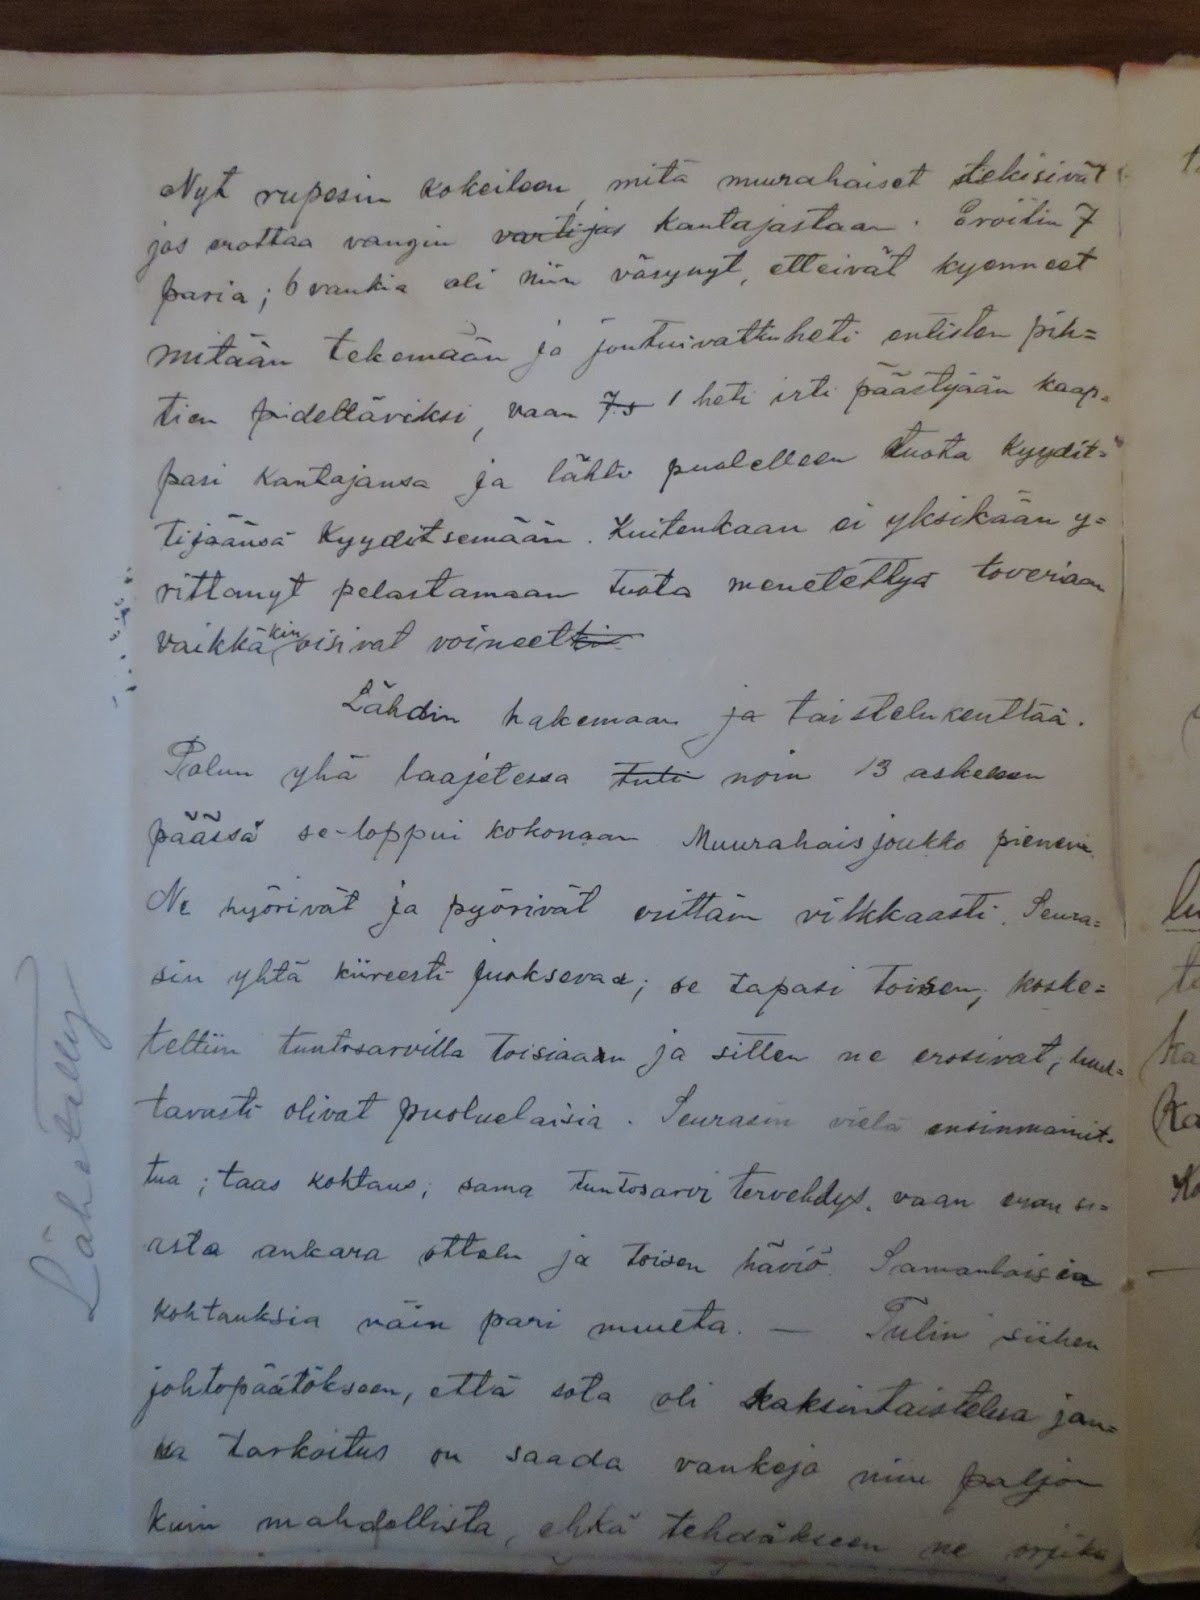 Nyt rupesin kokeileen, mitä muurahaiset tekisivät
jos erottaa vangin vartijas kantajastaan. Eroitin 7
paria; 6 vankia oli niin väsynyt, etteivät kyenneet
mitään tekemään ja joutuivatkin heti entisten pih=
tien pideltäviksi, vaan 7s 1 heti irti päästyään kaap=
pasi kantajansa ja lähti puolelleen tuota kyydit=
tijäänsä kyyditsemään. Kuitenkaan ei yksikään y=
rittänyt pelastamaan tuota menetettyä toveriaan
vaikkakin oisivat voineetki
Lähdin hakemaan ja taistelukenttää.
Polun yhä laajetessa tuli noin 13 askeleen
päässä se loppui kokonaan Muurahaisjoukko pieneni.
Ne hyörivät ja pyörivät erittäin vilkkaasti. Seura=
sin yhtä kiireesti juoksevaa; se tapasi toisen, koske=
teltiin tuntosarvilla toisiaan ja sitten ne erosivat, luul=
tavasti olivat puoluelaisia. Seurasin vielä ensinmainit=
tua; taas kohtaus; sama tuntosarvi tervehdys, vaan eron si=
asta ankara ottelu ja toisen häviö. Samanlaisia
kohtauksia näin pari muuta. — Tulin siihen
johtopäätökseen, että sota oli kaksintaistelua jon=
ka tarkoitus on saada vankeja niin paljon
kuin mahdollista, ehkä tehdäkseen ne orjiksi
Lähetetty